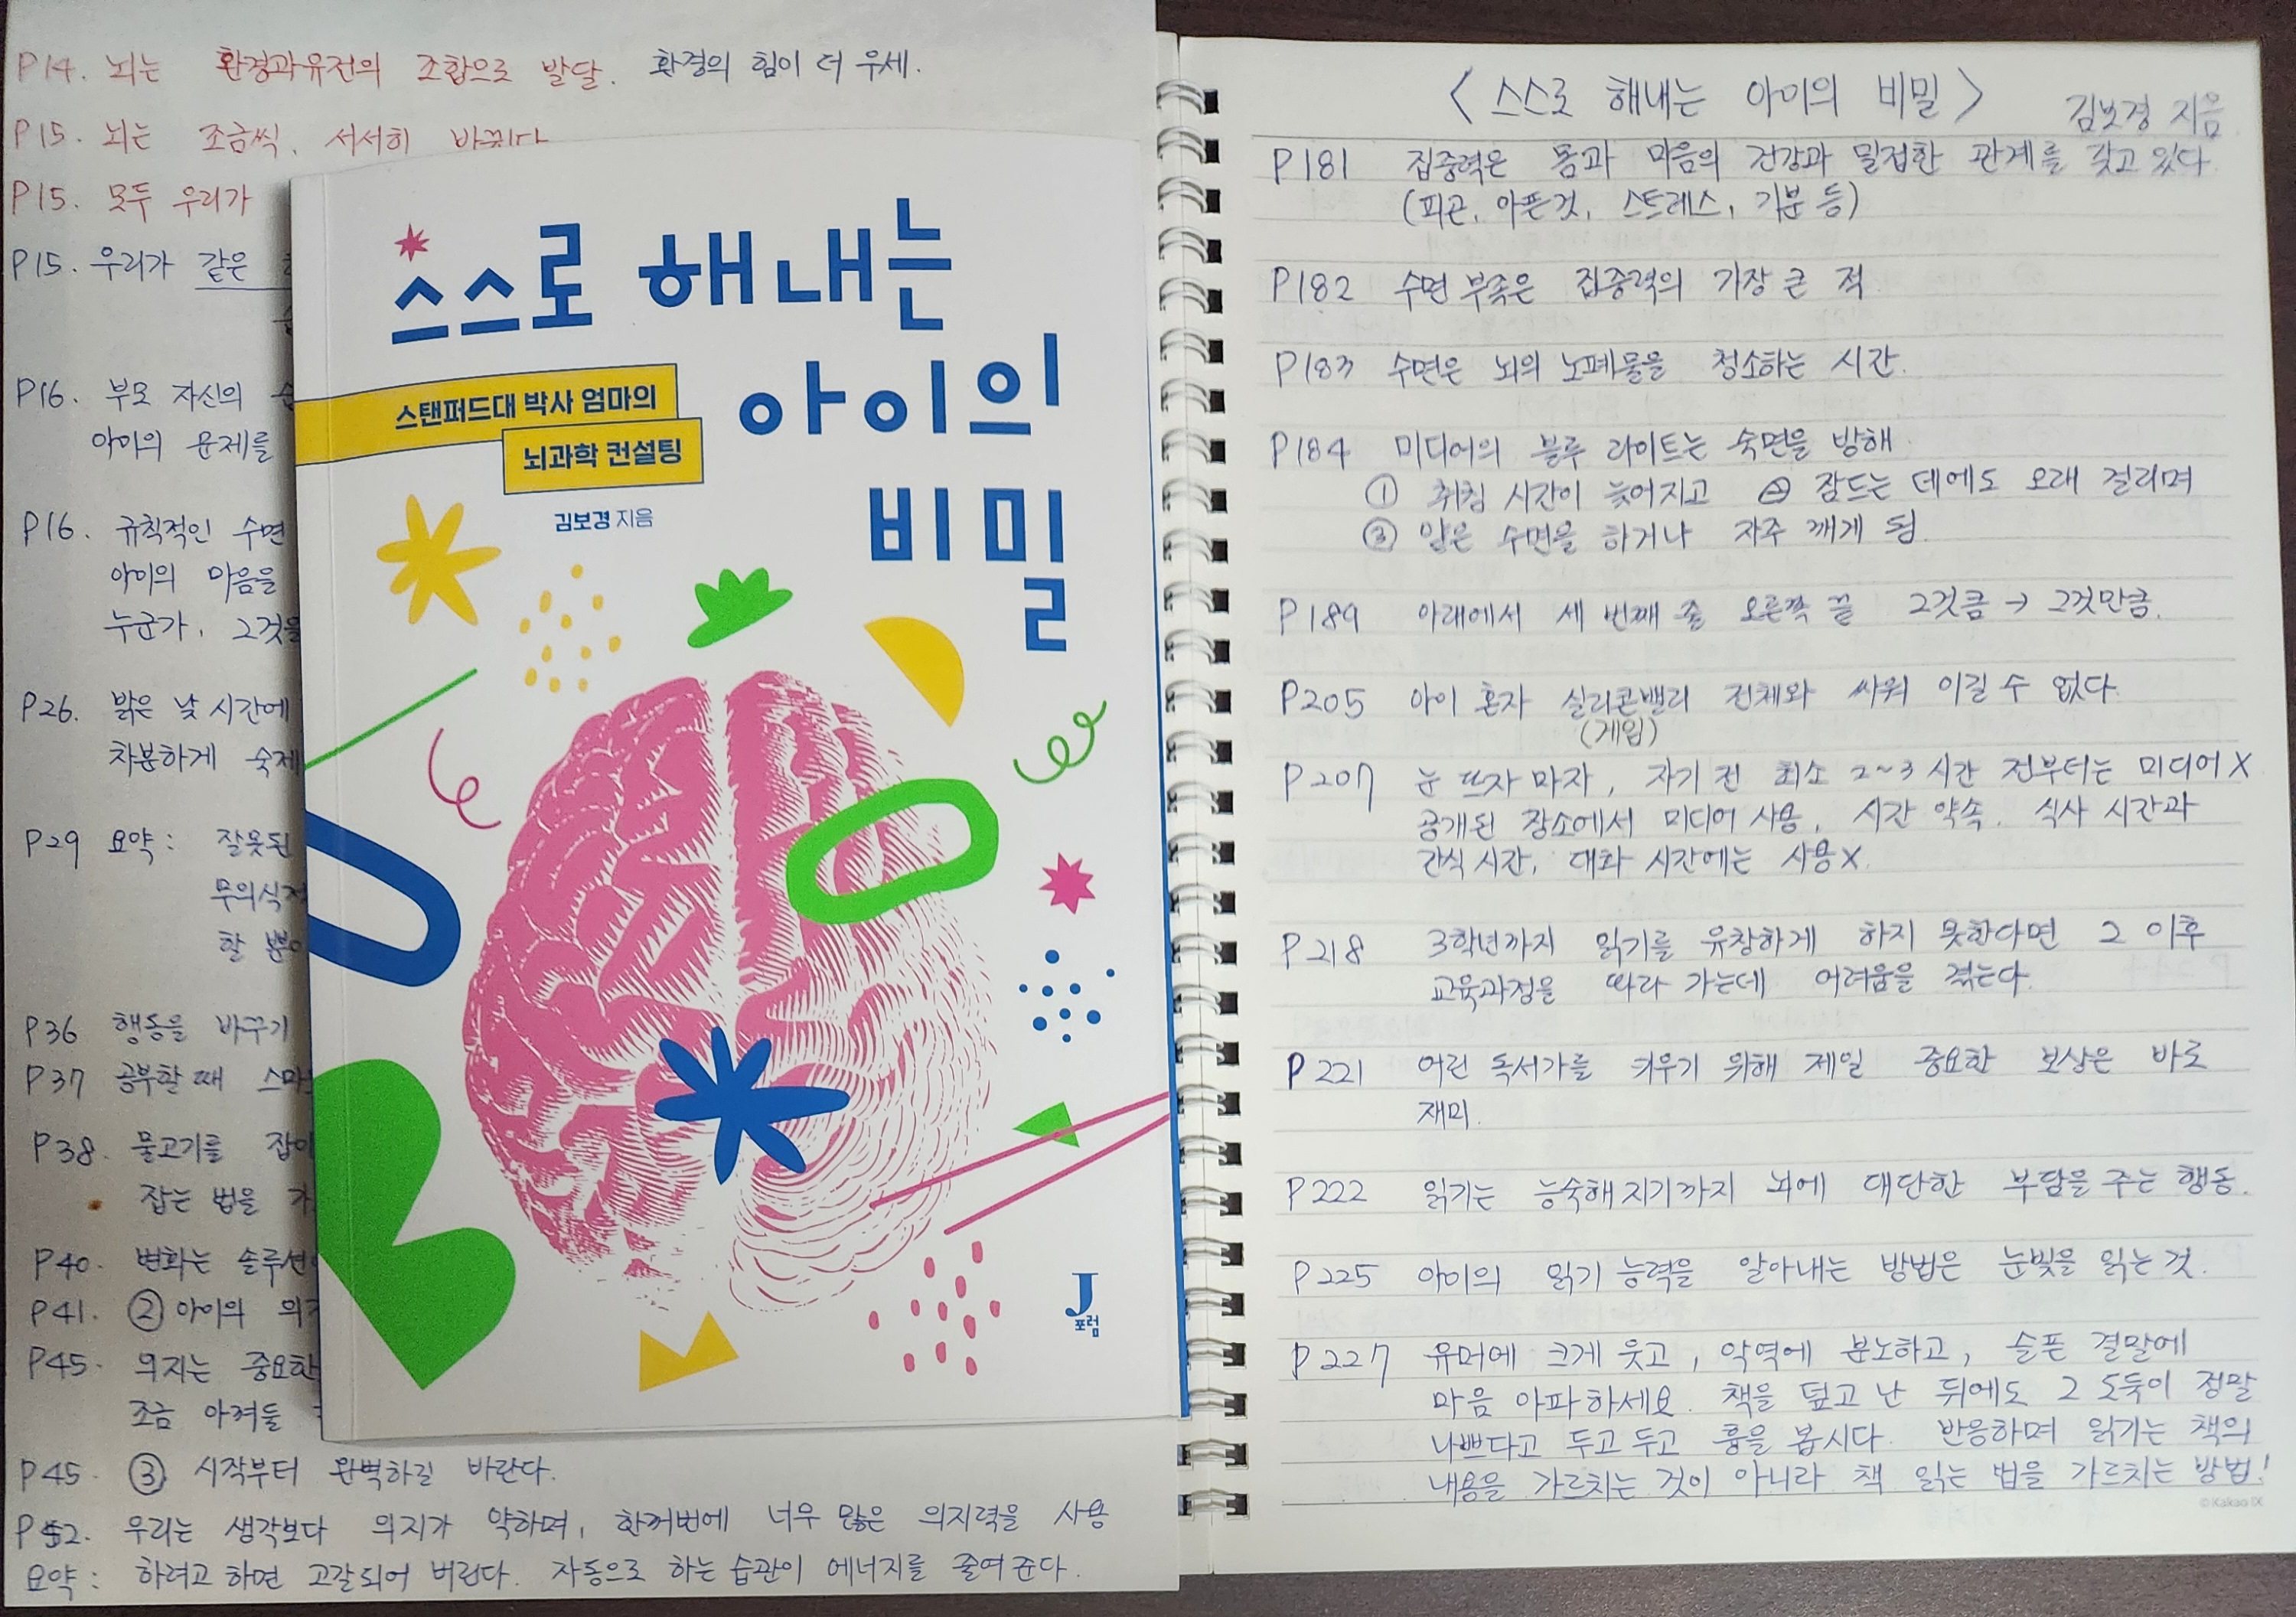 P14. 뇌는 환경과유전의 조합으로 발달. 환경의 힘이 더 우세.
P15. 뇌는 조금씩, 서서히 바뀐다
P15. 모두 우리가
P15. 우리가 같은
P16. 부모 자신의
아이의 문제를
P16. 규칙적인 수면
아이의 마음을
누군가, 그것을
P26. 밝은 낮 시간에
차분하게 숙제
P29 요약: 잘못된
무의식적
할 뿐
P36 행동을 바꾸기
P37 공부할 때 스마
P38. 물고기를 잡아
잡는 법을 가
P40. 변화는 솔루션
P41. ② 아이의 의지
P45. 의지는 중요한
조금 아껴둘
P45. ③ 시작부터 완벽하길 바란다.
P52. 우리는 생각보다 의지가 약하며, 한꺼번에 너무 많은 의지력을 사용
요약: 하려고 하면 고갈되어 버린다. 자동으로 하는 습관이 에너지를 줄여 준다.
스스로 해내는
아이의
비밀
스탠퍼드대 박사 엄마의
뇌과학 컨설팅
김보경 지음
J
포럼
<스스로 해내는 아이의 비밀>
김보경 지음
P181 집중력은 몸과 마음의 건강과 밀접한 관계를 갖고 있다
(피곤, 아픈것, 스트레스, 기분 등)
P182 수면 부족은 집중력의 가장 큰 적
P183 수면은 뇌의 노폐물을 청소하는 시간.
P184 미디어의 블루 라이트는 숙면을 방해.
① 취침 시간이 늦어지고 ② 잠드는 데에도 오래 걸리며
③ 얕은 수면을 하거나 자주 깨게 됨.
P189 아래에서 세 번째 줄 오른쪽 끝 그것큼 → 그것만큼.
P205 아이 혼자 실리콘밸리 전체와 싸워 이길 수 없다.
(게임)
P207 눈 뜨자 마자, 자기 전 최소 2~3시간 전부터는 미디어 X
공개된 장소에서 미디어 사용, 시간 약속. 식사 시간과
간식 시간, 대화 시간에는 사용X.
P218 3학년까지 읽기를 유창하게 하지 못한다면 그 이후
교육과정을 따라 가는데 어려움을 겪는다.
P221 어린 독서가를 키우기 위해 제일 중요한 보상은 바로
재미.
P222 읽기는 능숙해 지기까지 뇌에 대단한 부담을 주는 행동.
P225 아이의 읽기 능력을 알아내는 방법은 눈빛을 읽는 것.
P227 유머에 크게 웃고, 악역에 분노하고, 슬픈 결말에
마음 아파하세요. 책을 덮고 난 뒤에도 그 도둑이 정말
나쁘다고 두고두고 흉을 봅시다. 반응하며 읽기는 책의
내용을 가르치는 것이 아니라 책 읽는 법을 가르치는 방법!
© Kakao IX